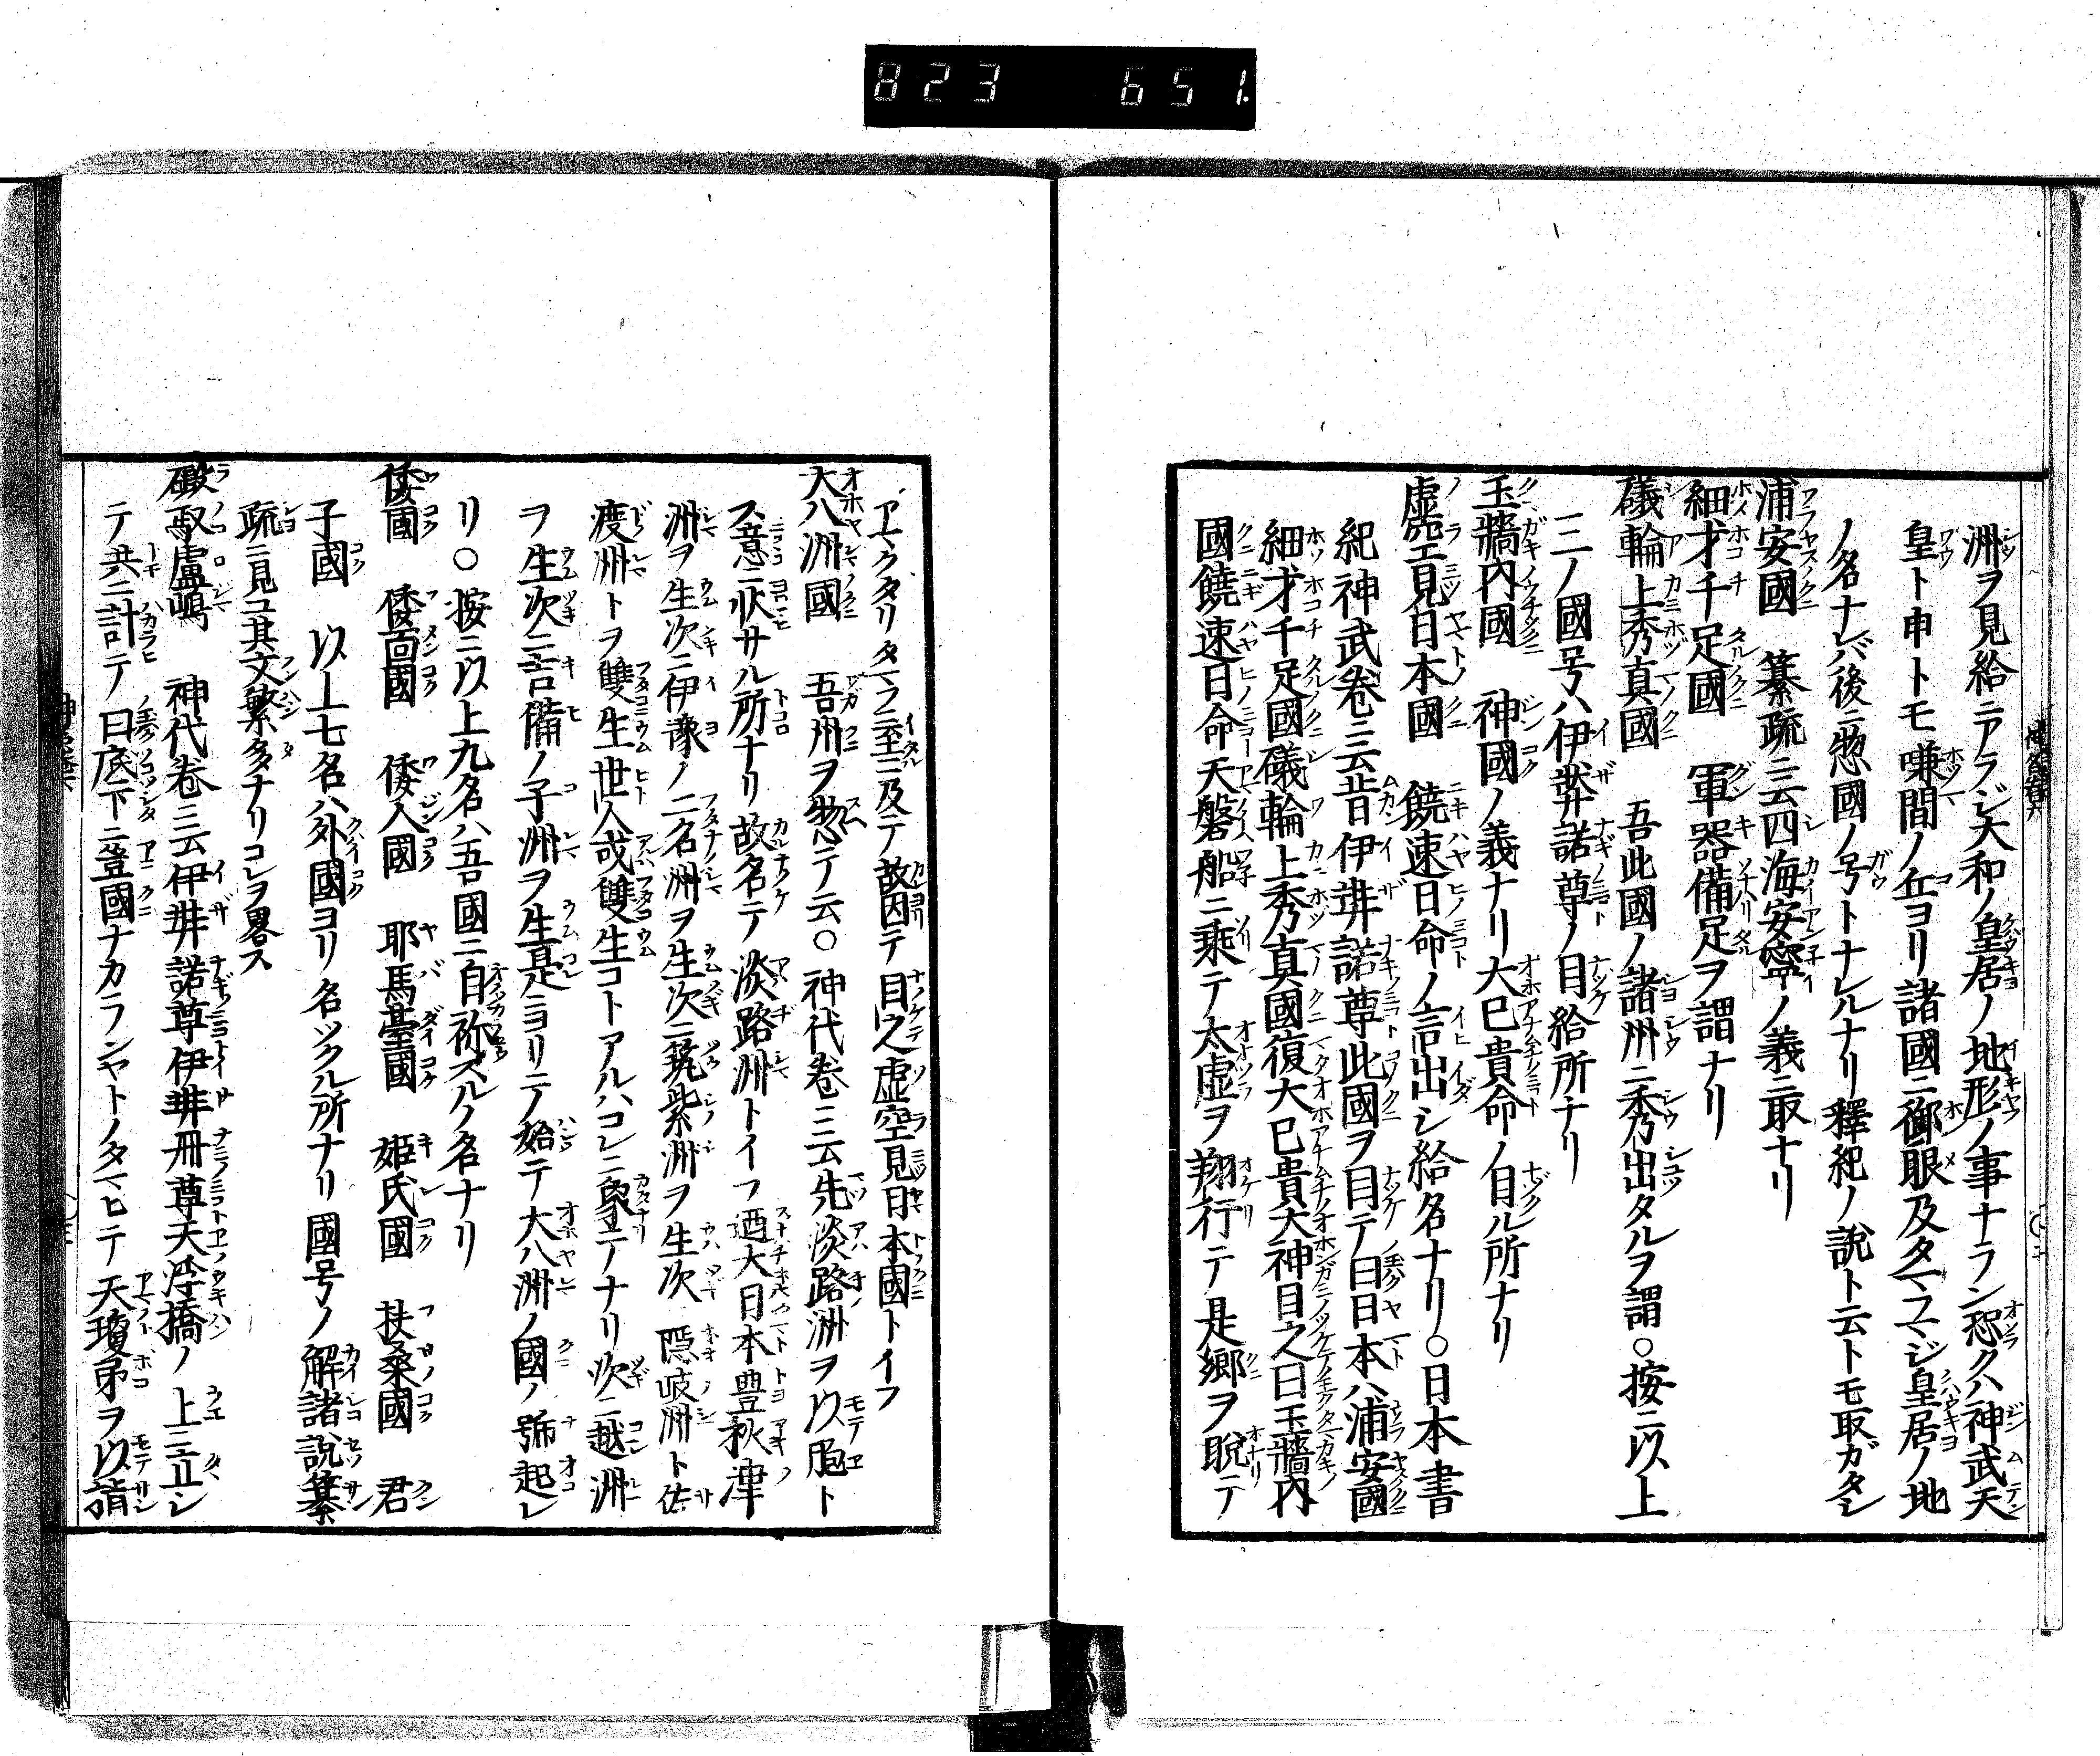 823 651.
洲ヲ見給ニアラジ大和ノ皇居ノ地形ノ事ナラン恐クハ神武天
皇ト申トモ嗛間ノ丘ヨリ諸國ニ御眼及タマフマジ皇居ノ地
ノ名ナレバ後ニ惣國ノ号トナレルナリ釋紀ノ說ト云トモ取ガタシ
浦安國 纂疏ニ云四海安寧ノ義ニ取ナリ
細才千足國 軍器備足ヲ謂ナリ
礒輪上秀真國 吾此國ノ諸州ニ秀出タルヲ謂○按ニ以上
三ノ國号ハ伊弉諾尊ノ目給所ナリ
玉牆內國 神國ノ義ナリ大巳貴命ノ目ル所ナリ
虛空見日本國 饒速日命ノ言出シ給名ナリ○日本書
紀神武卷ニ云昔伊弉諾尊此國ヲ目テ曰日本ハ浦安國
細才千足國礒輪上秀真國復大巳貴大神目之曰玉牆內
國饒速日命天磐船ニ乘テ太虛ヲ翔行テ是郷ヲ睨テ
アマクタリタマフニ至ニ及テ故因テ目之虛空見日本國トイフ
大八洲國 吾州ヲ惣テ云○神代卷ニ云先淡路洲ヲ以胞ト
ス意ニ㰳サル所ナリ故名テ淡路洲トイフ迺大日本豊秋津
洲ヲ生次ニ伊豫ノ二名洲ヲ生次ニ筑紫洲ヲ生次 隠岐洲ト佐
渡洲トヲ雙生世人或雙生コトアルハコレニ象テナリ次ニ越洲
ヲ生次ニ吉備ノ子洲ヲ生是ニヨリテ始テ大八洲ノ國ノ號起レ
リ○按ニ以上九名ハ吾國ニ自称スルノ名ナリ
倭國 倭面國 倭人國 耶馬臺國 姫氏國 扶桑國 君
子國 以上七名ハ外國ヨリ名ツクル所ナリ國号ノ解諸說纂
疏ニ見ユ其文繁多ナリコレヲ畧ス
磤馭盧嶋 神代卷ニ云伊弉諾尊伊弉冊尊天浮橋ノ上ニ立シ
テ共ニ計テノ曰底下ニ豈國ナカランヤトノタマヒテ天瓊矛ヲ以請